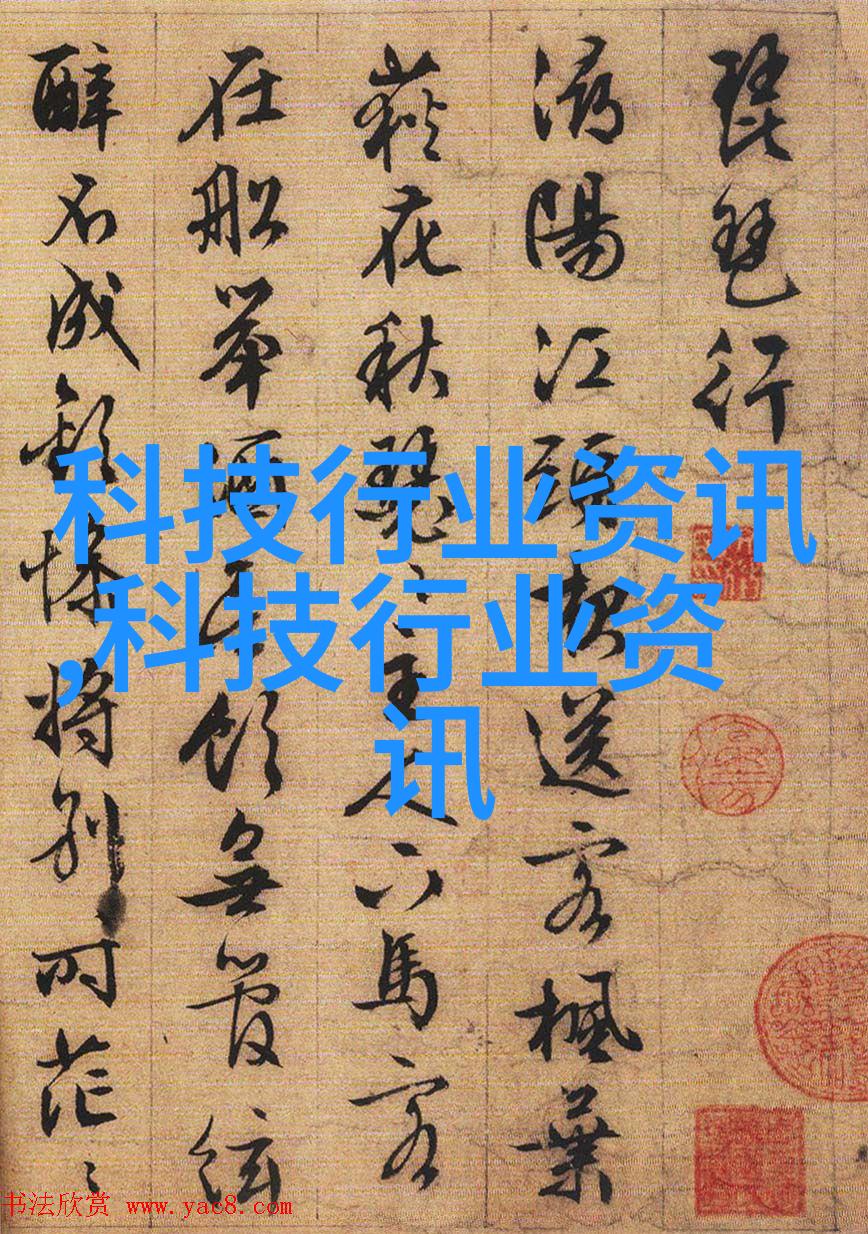 琵琶行
潯陽江頭夜送客楓葉
荻花秋瑟〻主人下馬客
在船舉酒欲飲無管絃
醉不成歡慘將別〻時茫〻
科技行业资讯
,科技行业资
讯
书法欣赏 www.yac8.com